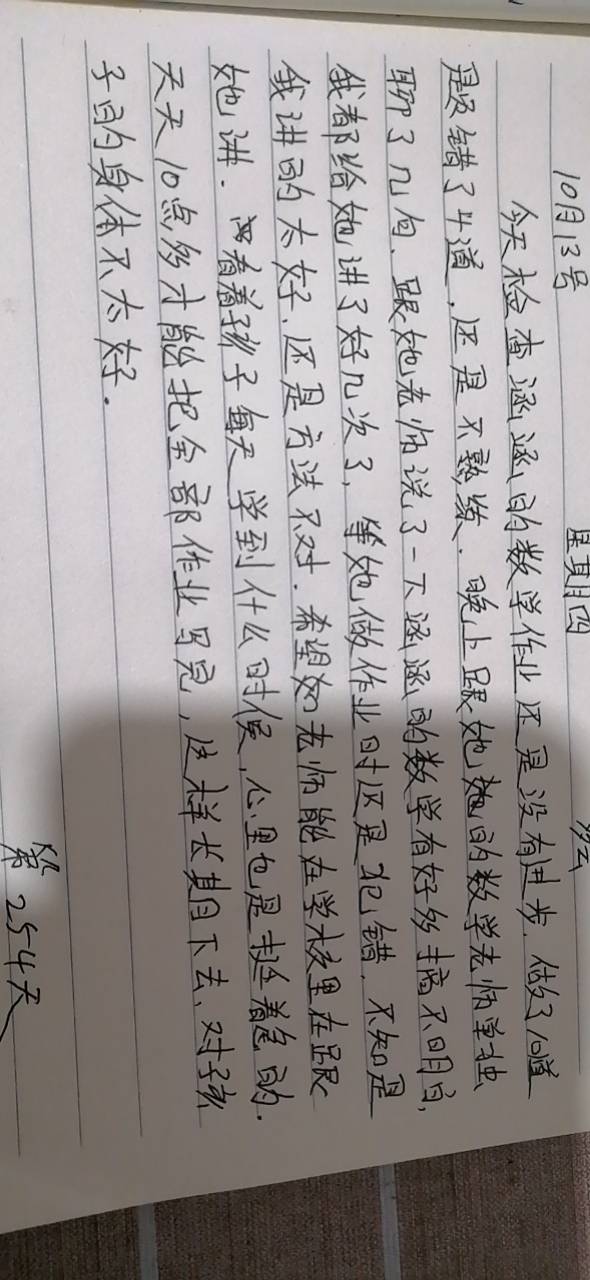 10月13号 星期四 多云
今天检查涵涵的数学作业还是没有进步，做了10道
题错了4道，还是不熟练．晚上跟她她的数学老师单独
聊了几句，跟她老师说了一下涵涵的数学有好多搞不明白，
我都给她讲了好几次了，等她做作业时还是犯错，不知是
我讲的太好，还是方法不对．希望如老师能在学校里在跟
她讲．看着孩子每天学到什么时候，心里也是挺着急的．
天天10点多才能把全部作业写完，这样长期下去，对孩
子的身体不太好．
第254天